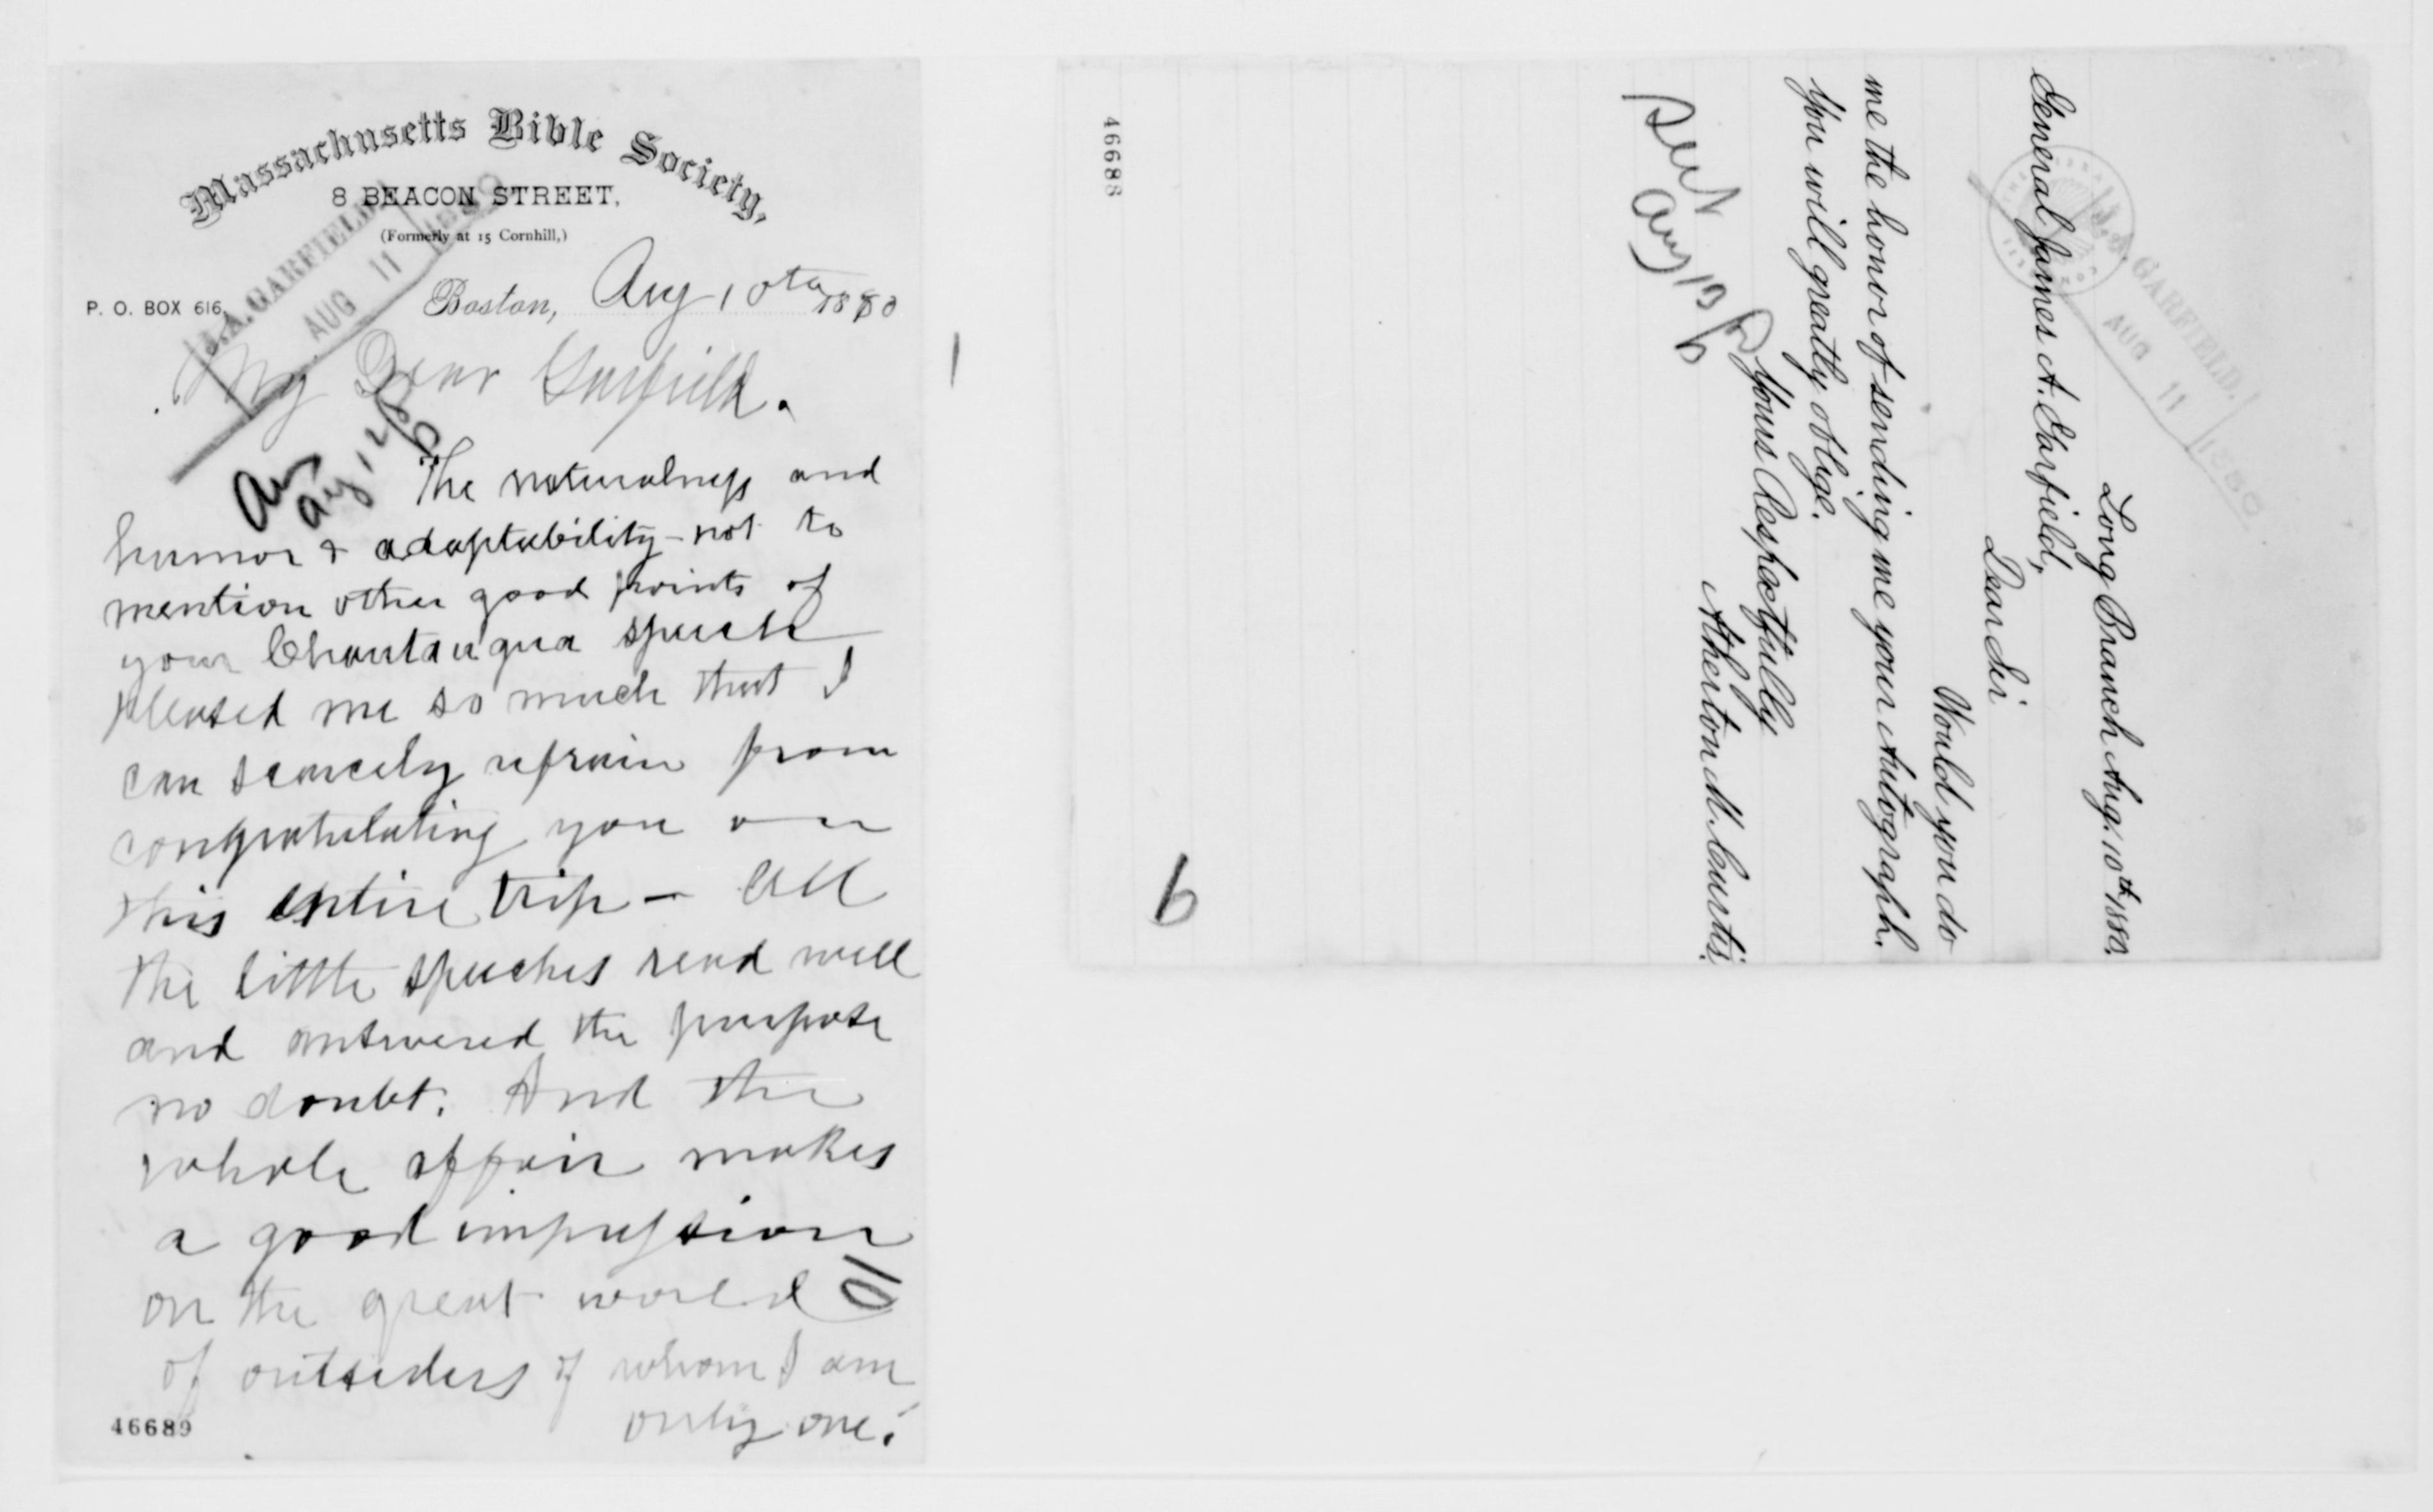 Massachusetts Bible Society,
8 BEACON STREET,
(Formerly at 15 Cornhill,)
P. O. BOX 616,
Boston, Aug 10th 1880
J. A. GARFIELD.
AUG 11 1880
My Dear Garfield.
an
Aug 12/80
The naturalness and
humor & adaptability - not to
mention other good points of
your Chautauqua speech
pleased me so much that I
can scarcely refrain from
congratulating you on
this entire trip - All
the little speeches read well
and answered the purpose
no doubt. And the
whole affair makes
a good impression
on the great world
of outsiders of whom I am
only one!
10
46689
1
Long Branch Aug. 10th 1880.
General James A. Garfield,
Dear Sir
Would you do
me the honor of sending me your Autograph.
You will greatly oblige.
Yours Respectfully
Atherton M. Curtis.
Sent
Aug 13/80
J. A. GARFIELD.
AUG 11 1880
46688
6